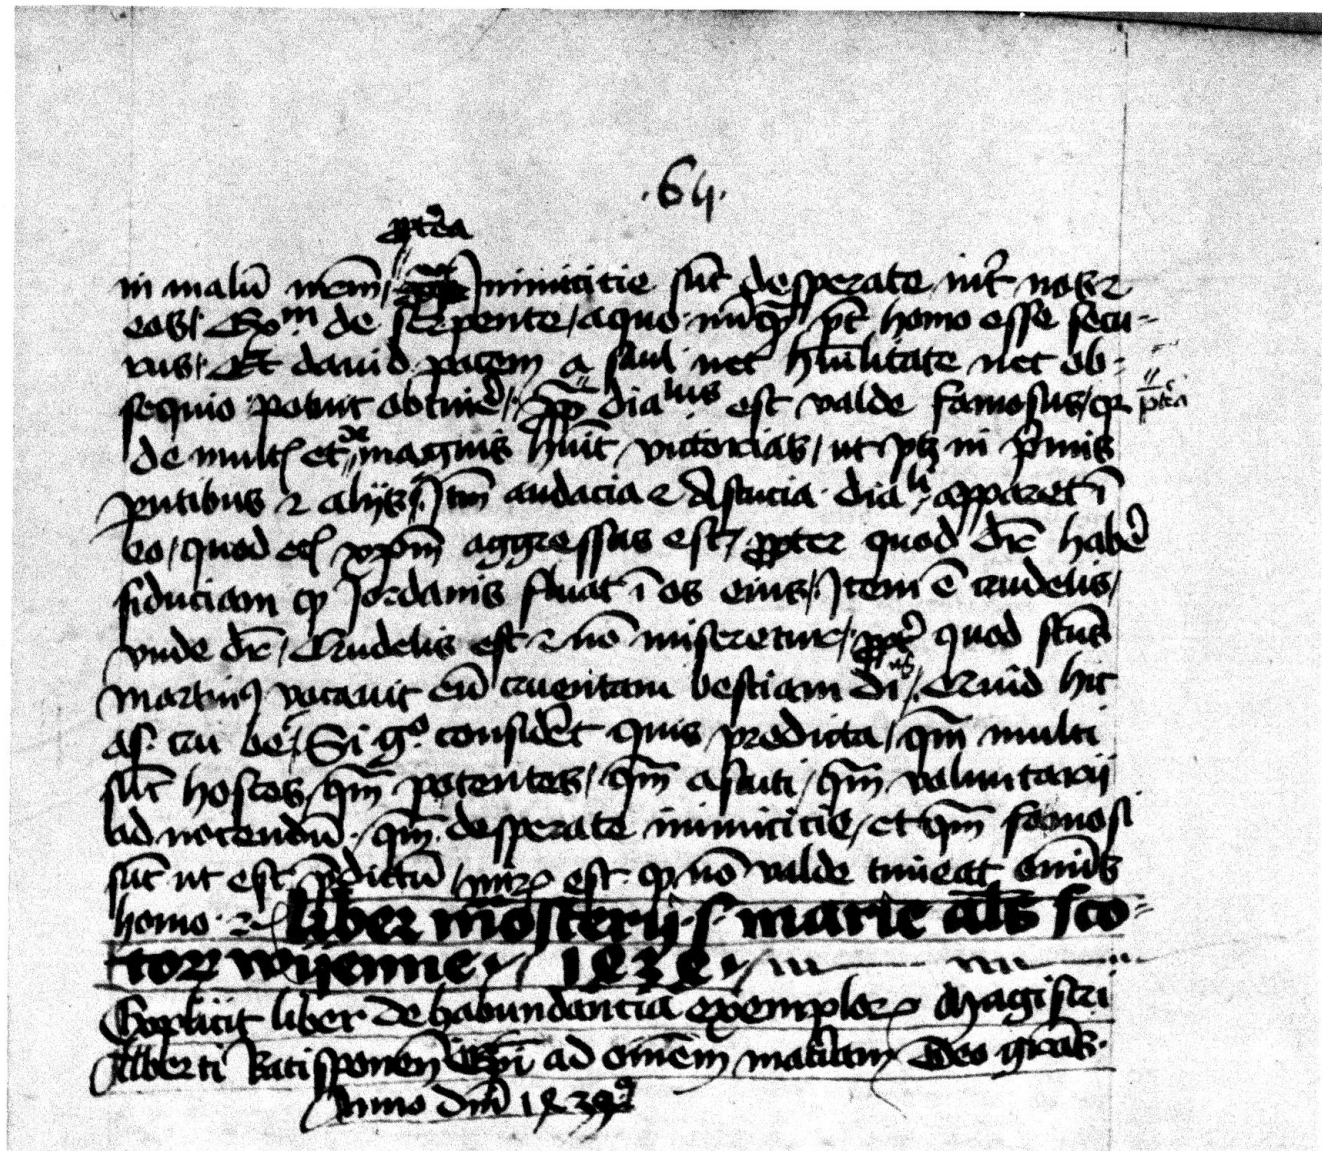 ·64·
ptea
in malū meū / Inimicitie sūt desperate int̄ nos et
eos / Exoᵐ de serpente / a quo nūqᵃ pt̄ homo esse secu=
rus / Et dauid pacem a saul nec hūilitate nec ob=
sequio potuit obtinē / dialus est valde famosus / qr ptea
de mult et de magnis hūit victorias / ut ptz in p̄mis
pntibus et alijs / Itm̄ audacia et Astucia diali apparet ī
eo / quod xpm̄ aggressus est / propter quod dr̄ habē
fiduciam qp Jordanis fluat ī os eius / Item ē crudelis /
vnde dr̄ / Crudelis est et nō miseretur / quod sctūs
martinꝯ vocauit eū cruentam bestiam / hic
as. cru be / Si gᵒ. considet quis predicta / qm̄ multi
sūt hostes / qm̄ potentes / qm̄ astuti / qm̄ voluntarii
ad nocendū · qm̄ desperate inimicitie / et qm̄ famosi
sūt ut est p̄dictū / mirū est qp nō valde timeat omīs
homo · et c̄ liber mōsterij · s · marie al̄s sco=
torꝝ wyenne
Explicit liber de habundancia exemplorꝝ Magistri
Alberti Ratisponen̄ Ep̄i ad omēm mat̄iam Deo gracīas·
Anno dn̄i 1439ᵒ